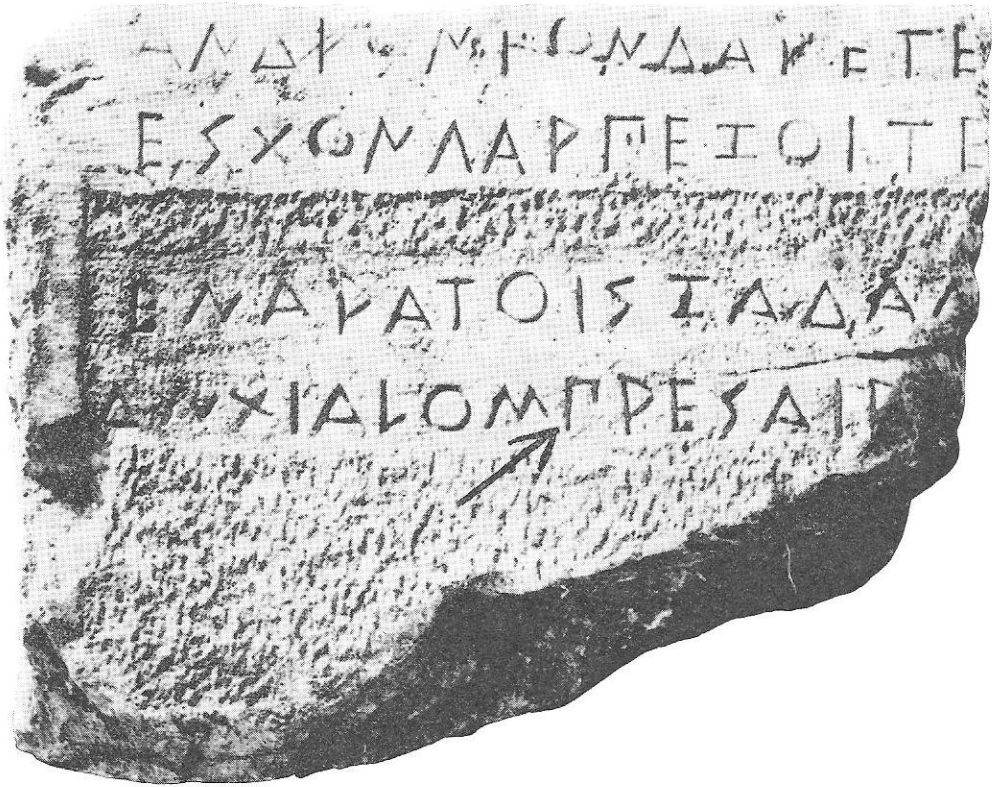 ΑΝΔΡΟΝΤΟΝΔΑΡΕΤΕ
ΕΣΧΟΝΓΑΡΠΕΖΟΙΤΕ
ΕΝΑΡΑΤΟΙΣΖΑΔΑΜ
ΑΝΧΙΑΛΟΜΠΡΕΣΑΙΠ